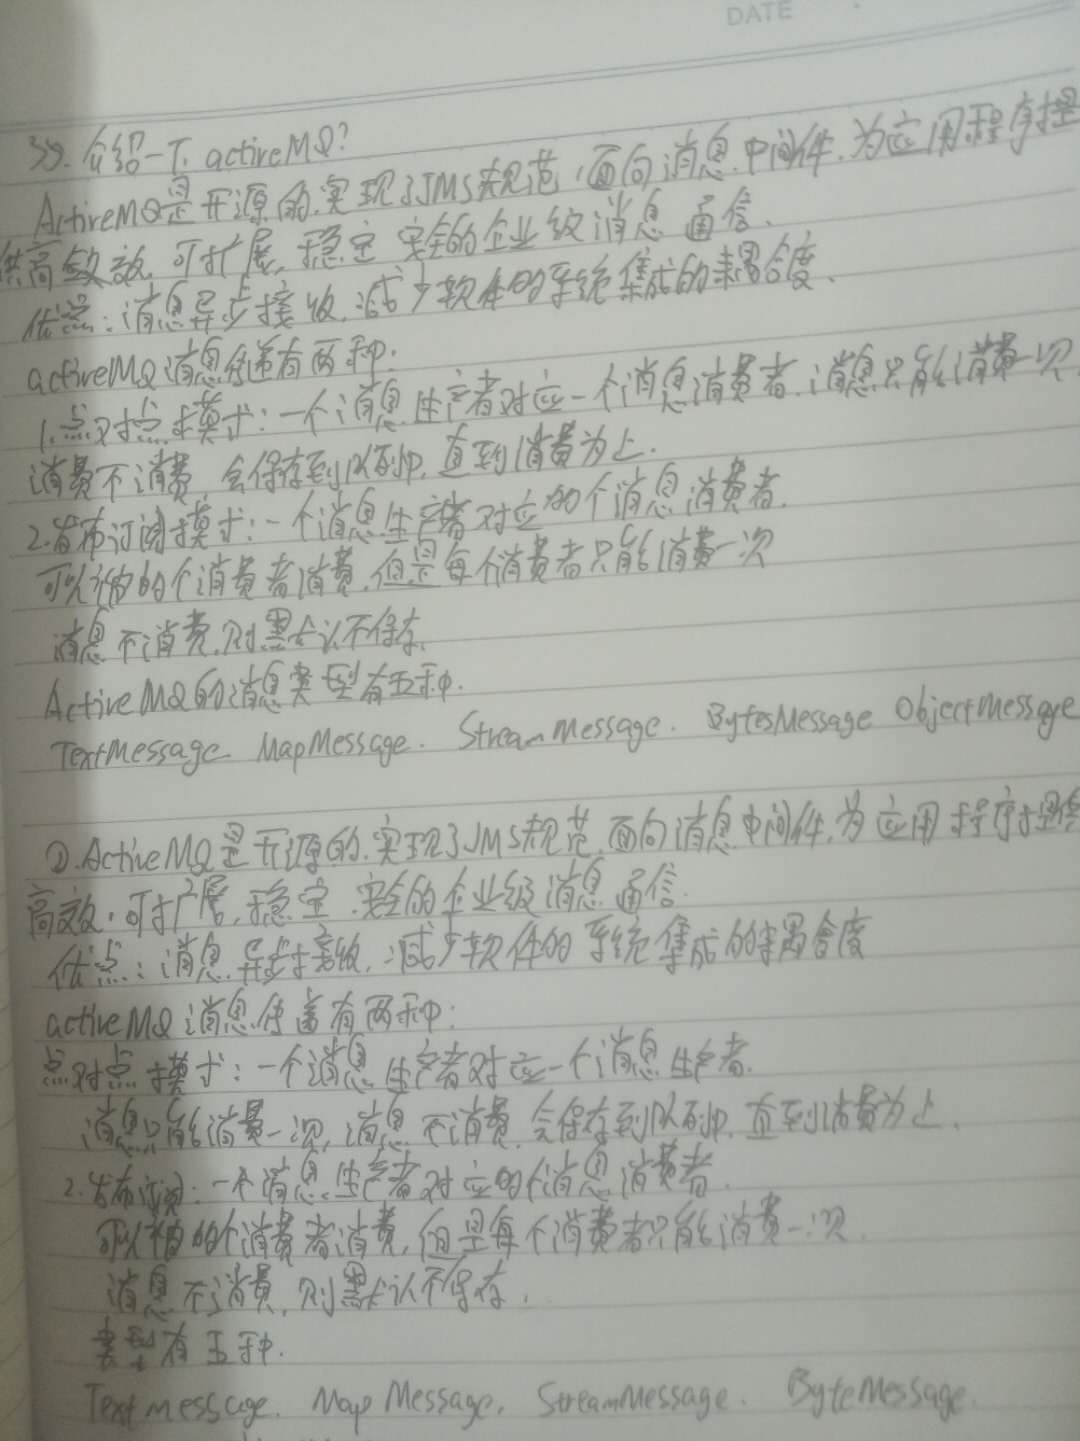 DATE
39. 介绍一下 activeMQ?
ActiveMQ是开源的,实现了JMS规范,面向消息中间件,为应用程序提
供高效,可扩展,稳定 安全的企业级消息通信、
优点:消息异步接收,减少软件的系统集成的耦合度、
activeMQ消息传递有两种:
1.点对点模式:一个消息生产者对应一个消息消费者.消息只能消费一次
消费不消费 会保存到队列中,直到消费为止.
2.发布订阅模式:一个消息生产者对应多个消息消费者.
可以被多个消费者消费,但是每个消费者只能消费一次
消息不消费,则默认不保存,
ActiveMQ的消息类型有五种.
TextMessage MapMessage. StreamMessage. BytesMessage ObjectMessage
②.ActiveMQ是开源的,实现了JMS规范,面向消息中间件,为应用程序提供
高效,可扩展,稳定.安全的企业级消息通信.
优点:消息异步接收,减少软件的系统集成的耦合度
activeMQ消息传递有两种:
点对点模式:一个消息生产者对应一个消息生产者.
消息只能消费一次,消息不消费,会保存到队列中,直到消费为止.
2.发布订阅:一个消息生产者对应多个消息消费者.
可以被多个消费者消费,但是每个消费者只能消费一次.
消息不消费,则默认不保存.
类型有五种.
Textmesscge. MapMessage. StreamMessage. ByteMessage.